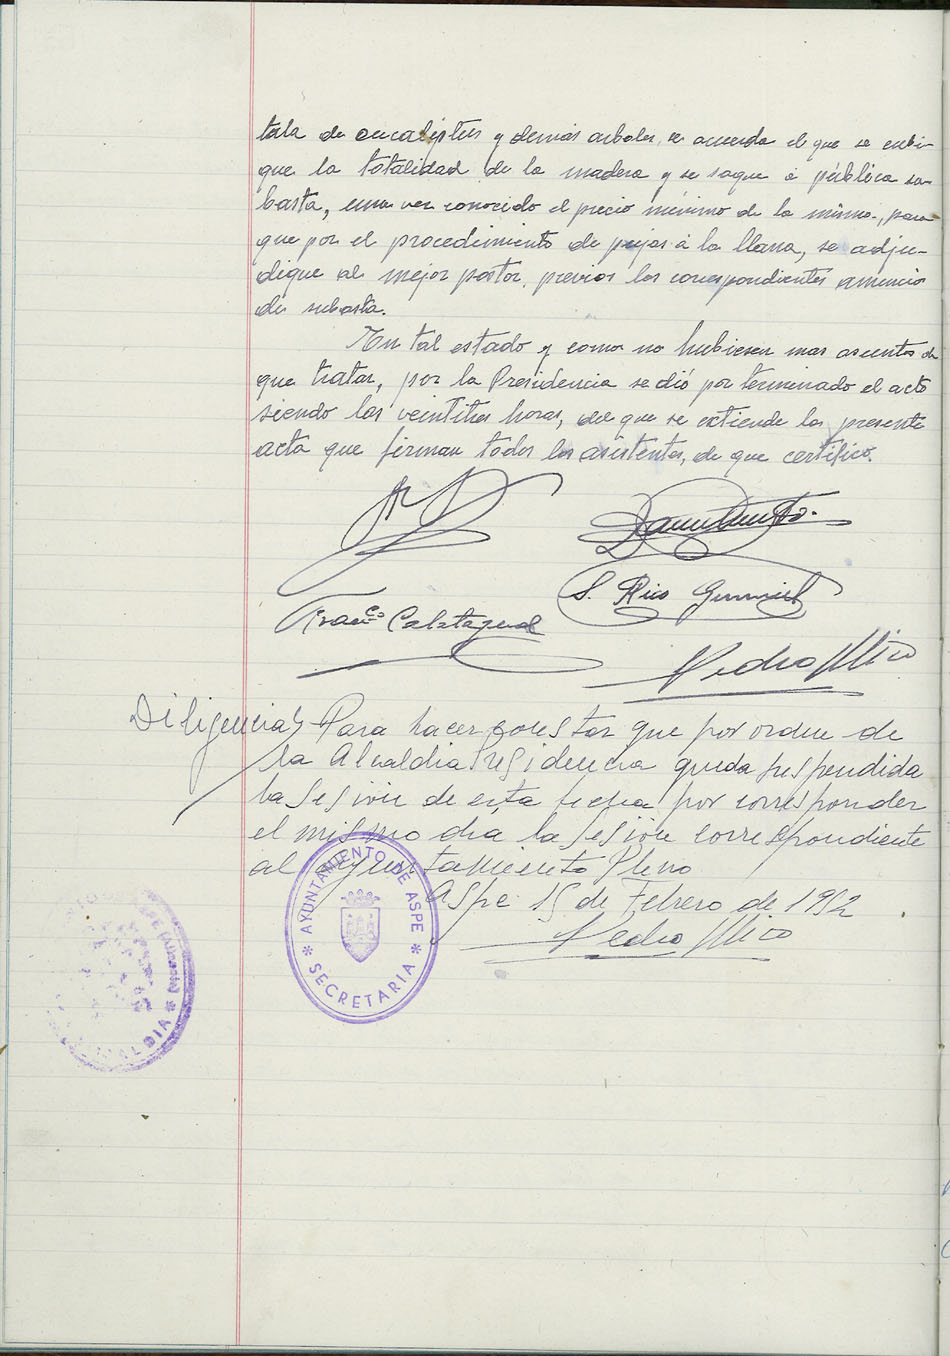 tala de eucaliptus y demás arboles, se acuerda el que se cubi-
que la totalidad de la madera y se saque á pública su-
basta, una vez conocido el precio mínimo de la misma, para
que por el procedimiento de pujas á la llana, se adju-
dique al mejor postor, previos los correspondientes anuncios
de subasta.
En tal estado y como no hubiesen mas asuntos de
que tratar, por la Presidencia se dió por terminado el acto
siendo las veintitres horas, del que se extiende la presente
acta que firman todos los asistentes, de que certifico.
S. Rico
Franco Calatayud
Pedro Mico
Diligencia Para hacer constar que por orden de
la Alcaldia Presidencia queda suspendida
la sesión de esta fecha por corresponder
el mismo dia la sesión correspondiente
al Ayuntamiento Pleno
Aspe 15 de Febrero de 1952
Pedro Mico
AYUNTAMIENTO DE ASPE
* SECRETARIA *